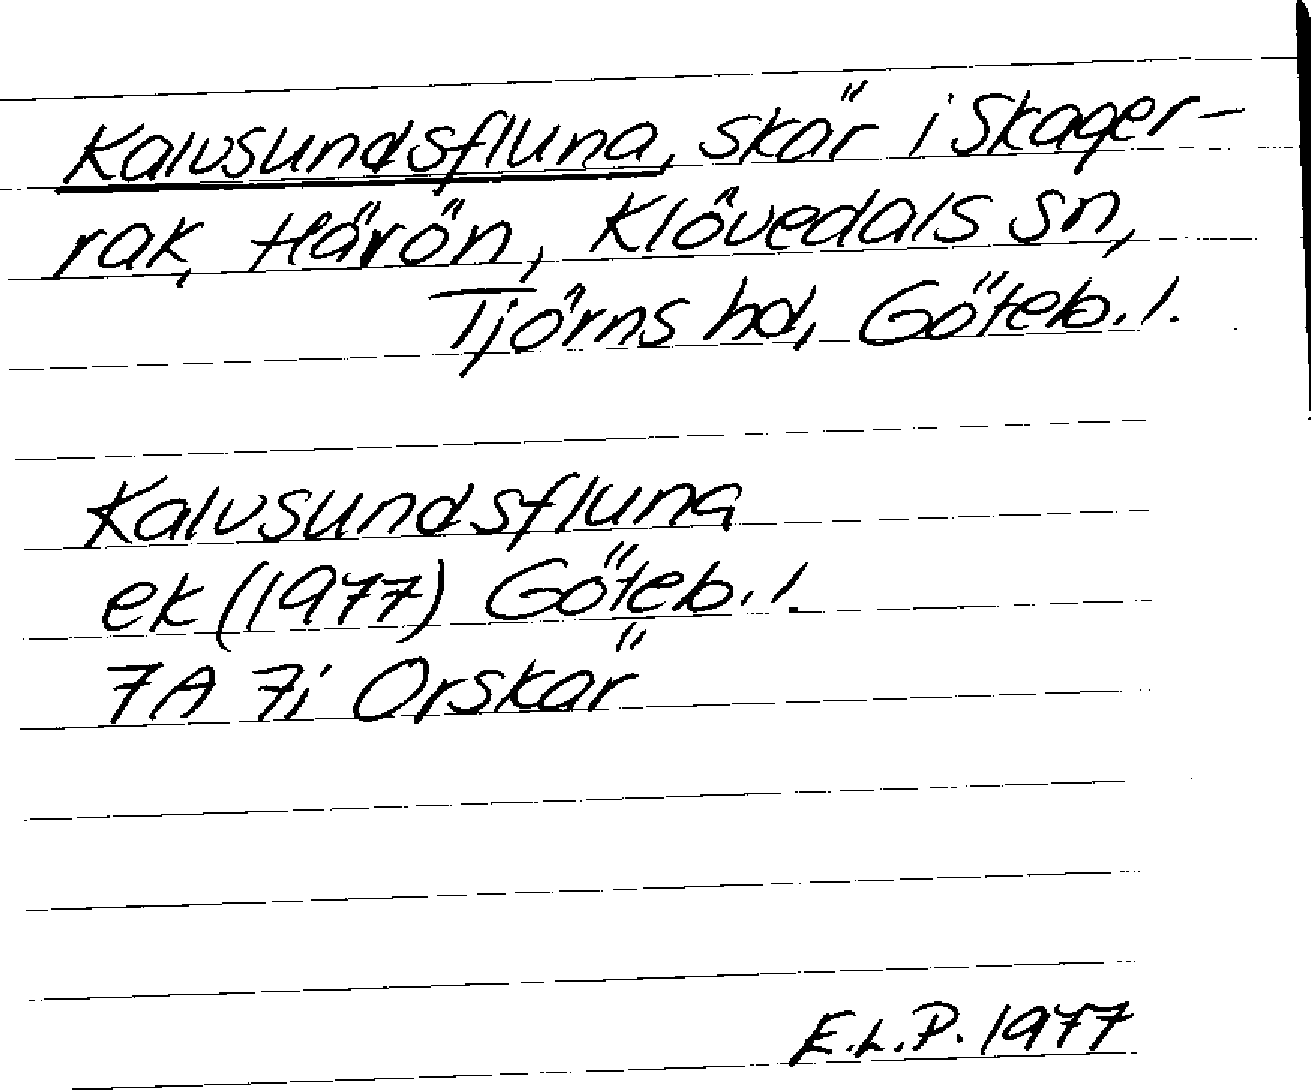 Kalvsundsfluna, skär i Skager-
rak, Härön, Klövedals sn,
Tjörns hd, Göteb. l.
Kalvsundsfluna
ek (1977) Göteb. l.
7A 7i Orskär
E.L.P. 1977